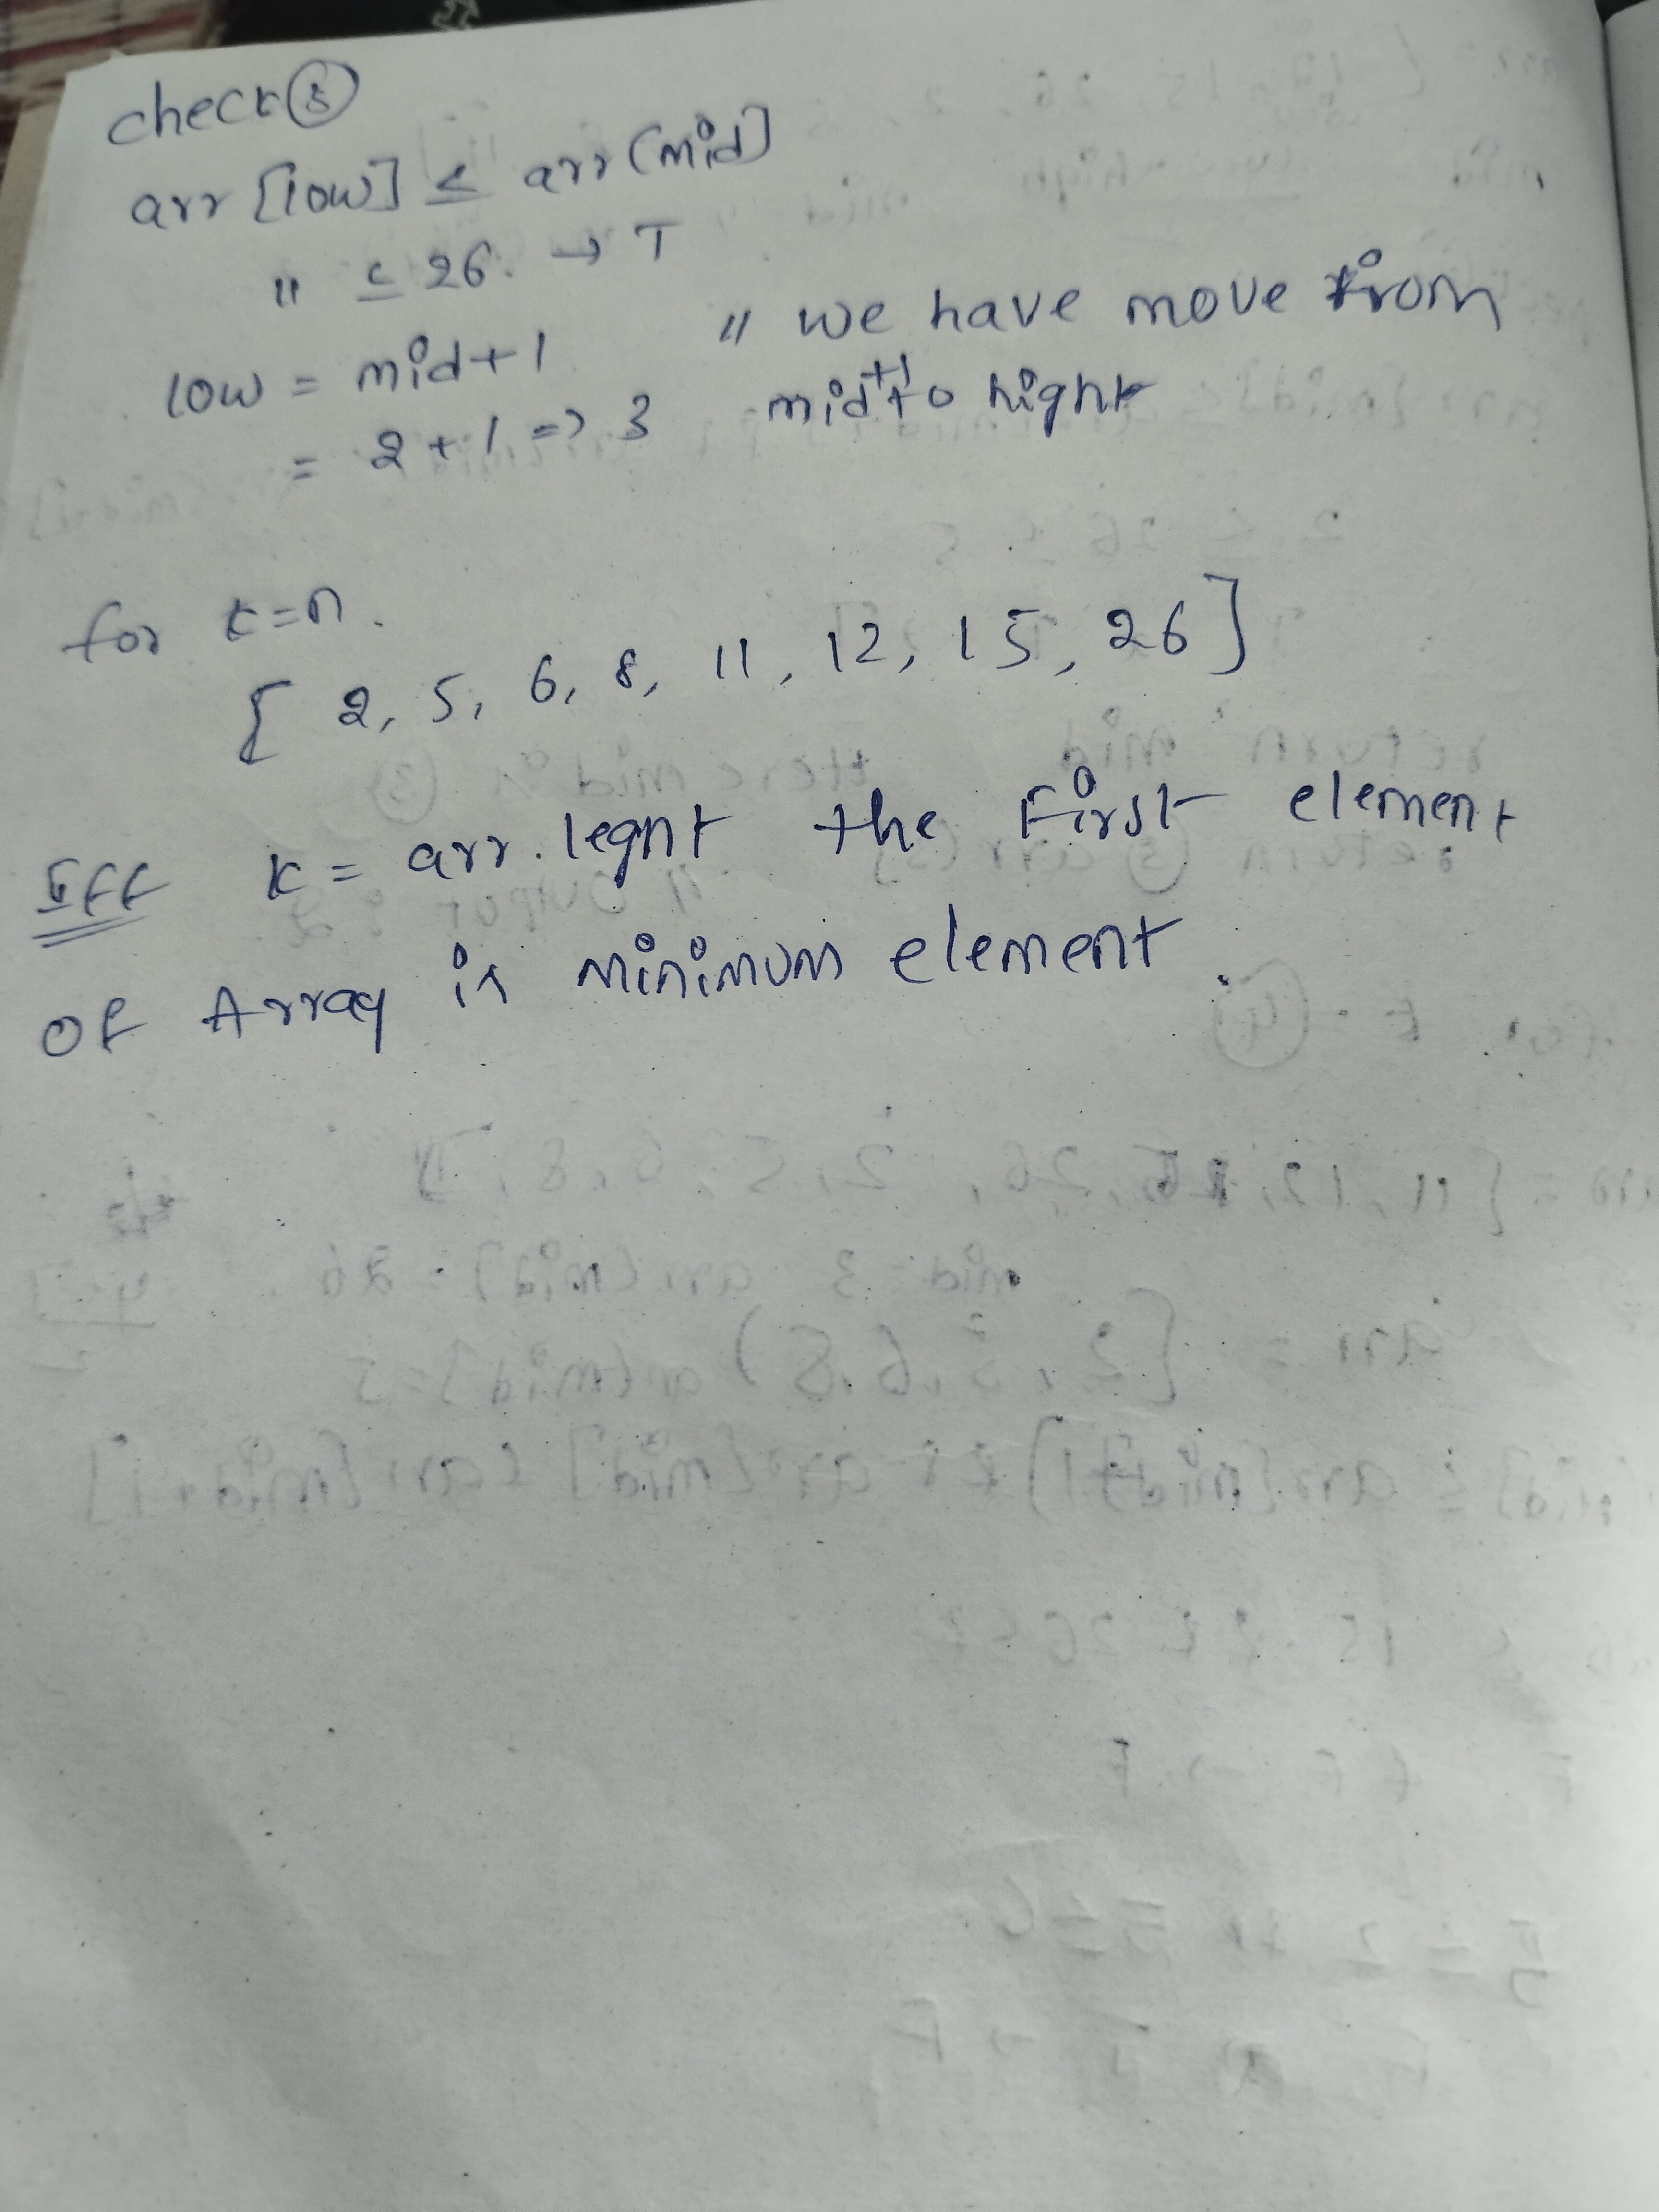 check③
arr [low] ≤ arr (mid]
11 ≤ 26. → T
low = mid+1 // we have move from
= 2+1 => 3 mid+1 to hight
for k=n.
[ 2, 5, 6, 8, 11, 12, 15, 26]
Iff k = arr.legnt the First element
of Array is minimum element.